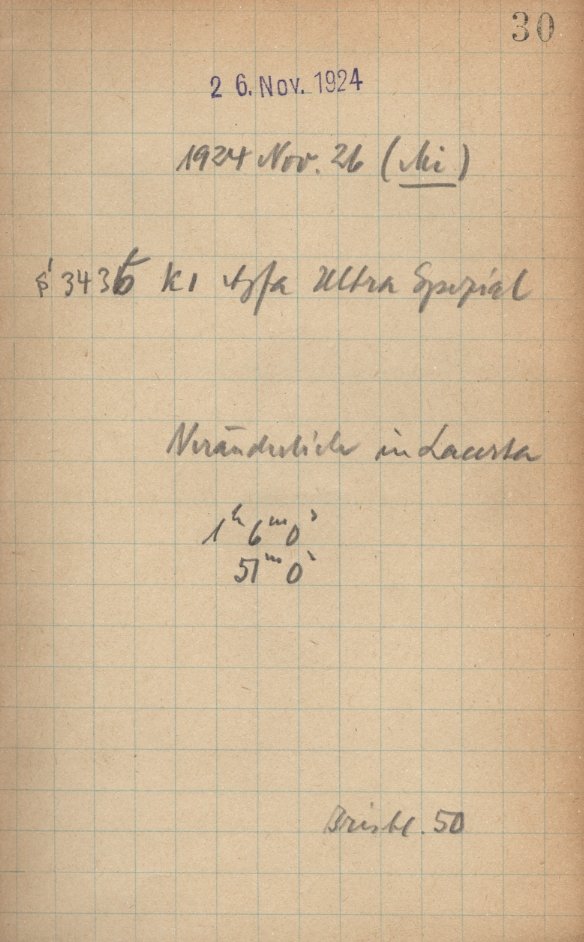 30
26. Nov. 1924
1924 Nov. 26 (Mi)
343 K1 Agfa Ultra Spezial
Veränderliche in Lacerta
1ʰ 6ᵐ 0ˢ
51ᵐ 0ˢ
50